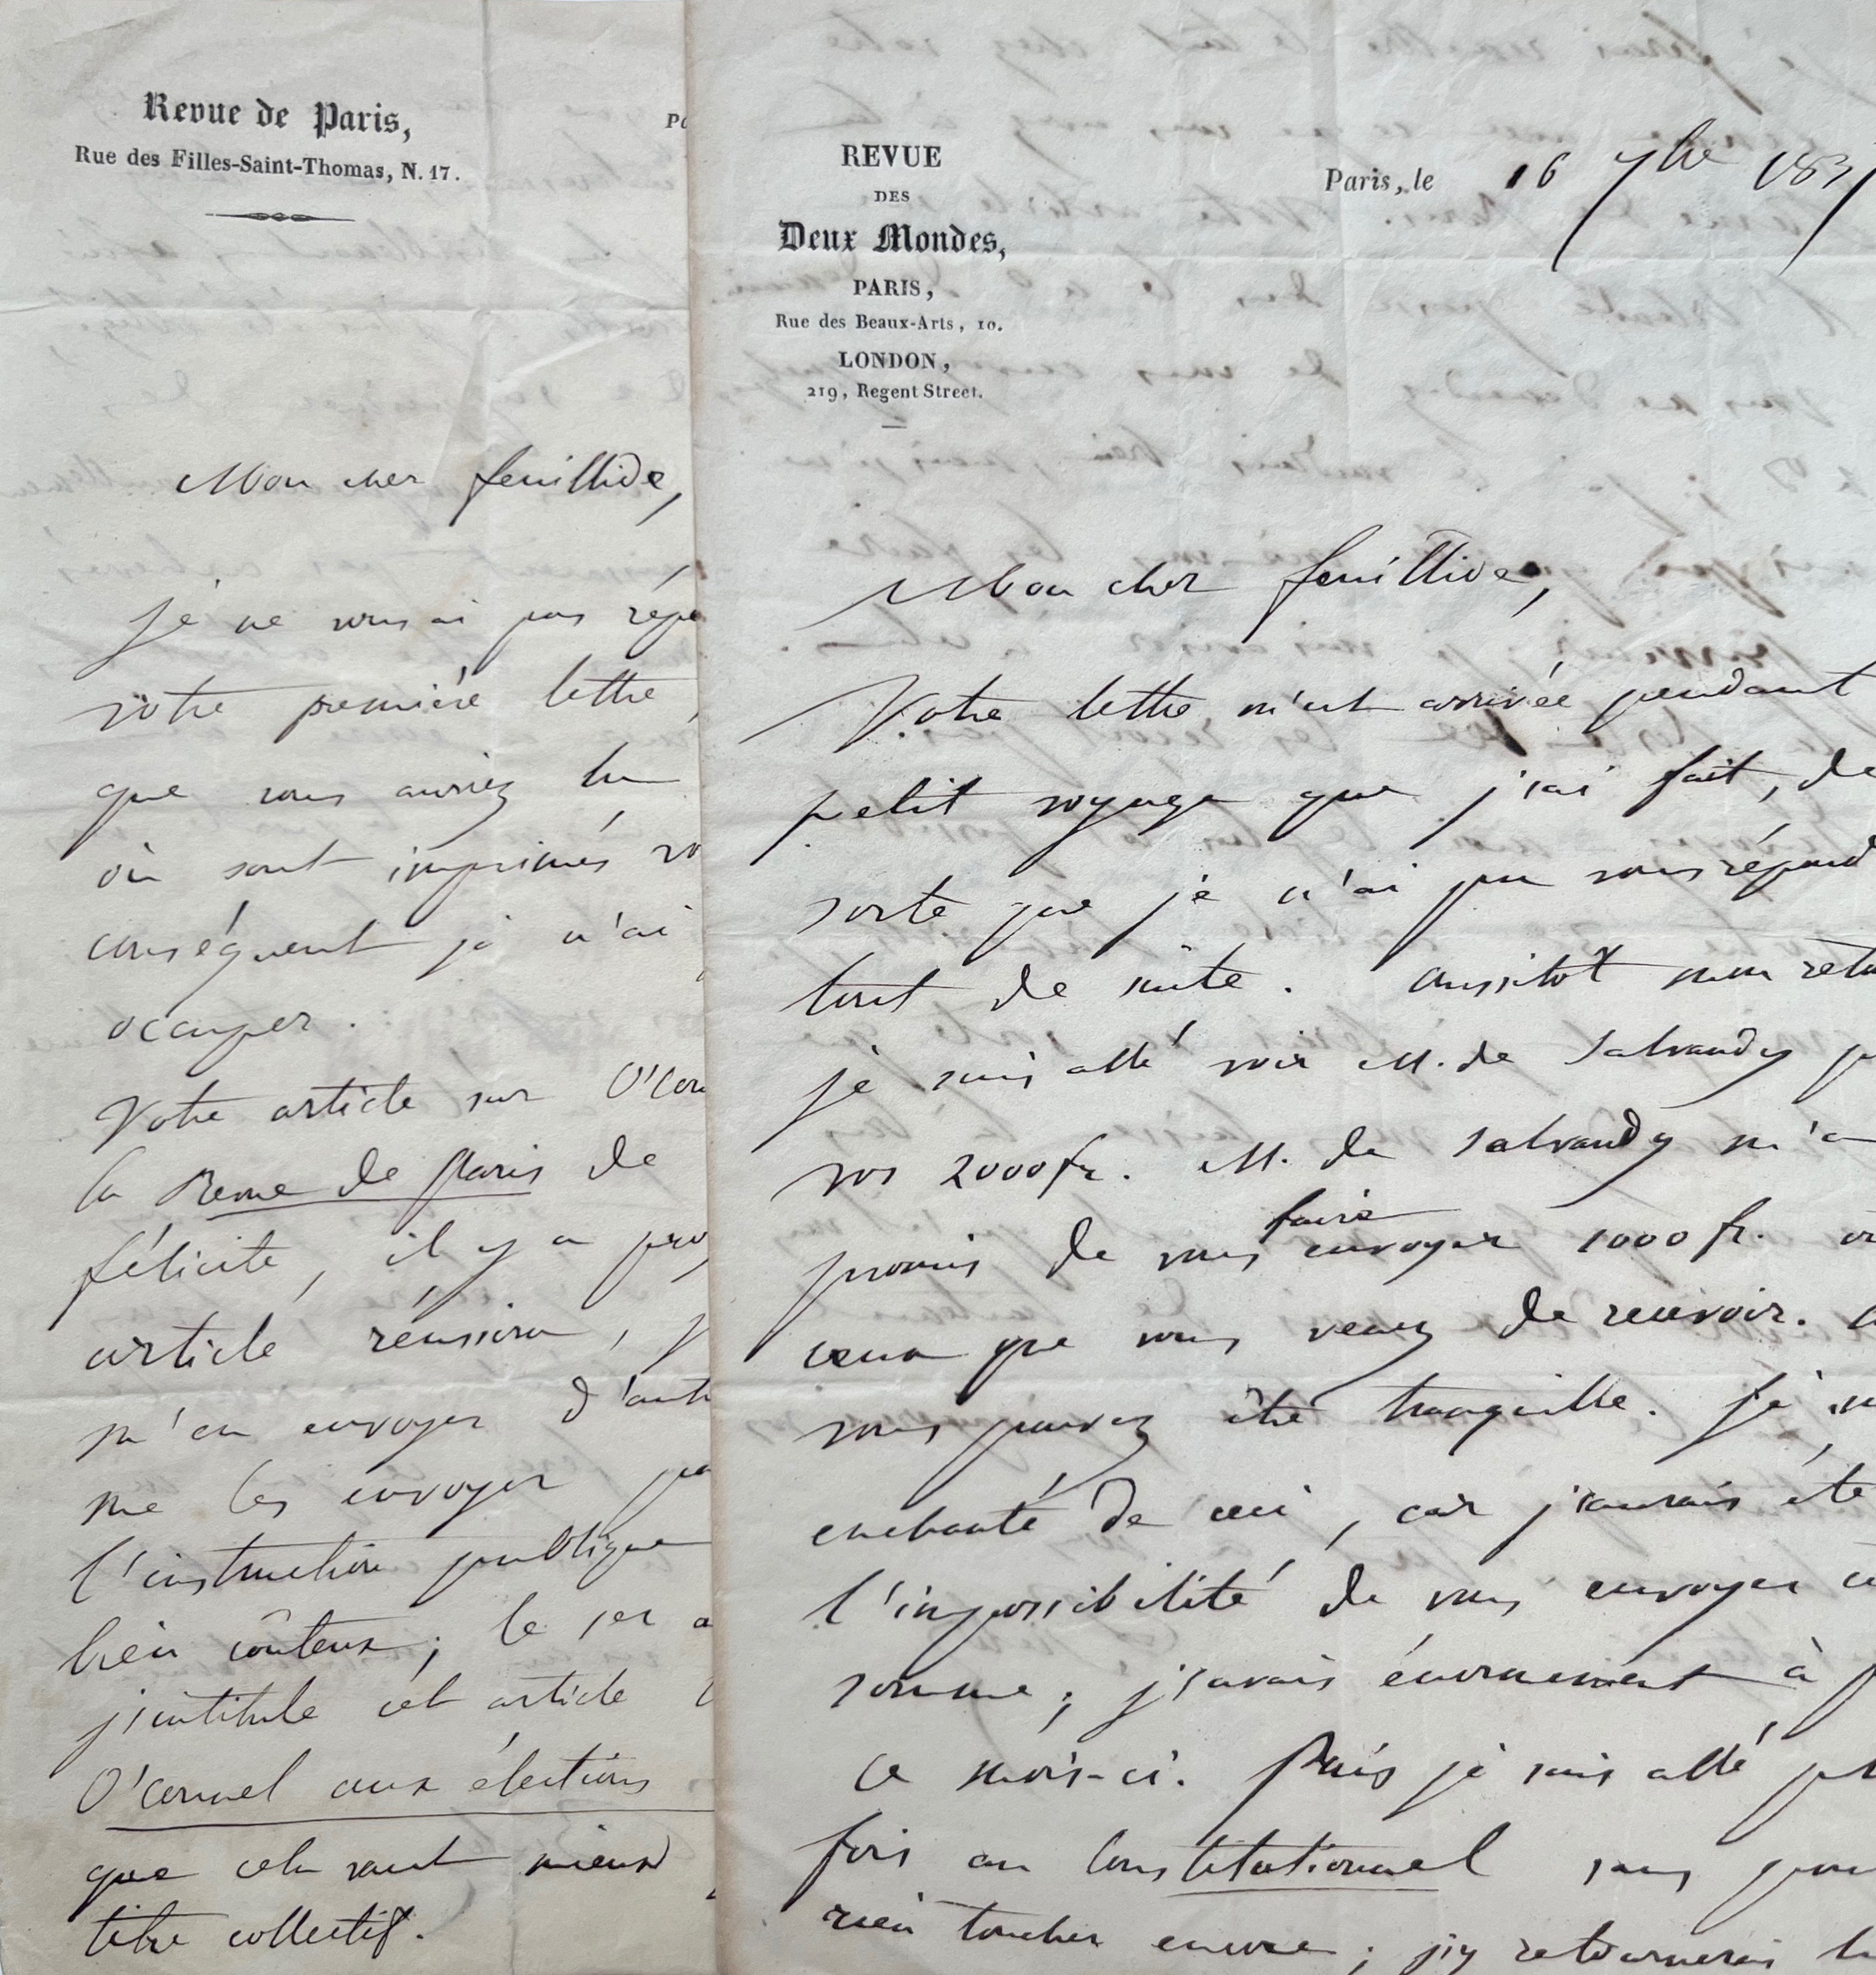 Revue de Paris,
Rue des Filles-Saint-Thomas, N. 17.
Mon cher feuillide,
je ne vous ai pas répo
votre première lettre,
que vous auriez lu
où sont imprimés vo
conséquent je n'ai
occuper.
Votre article sur O'Con
la Revue de Paris de
félicite, il y a
article réussira, j
m'en envoyer d'aut
me les envoyer pa
l'instruction publique
bien coûteux; le 1er a
j'intitule cet article
O'Connel aux élections
que cela vaut mieux
titre collectif.
REVUE
DES
Deux Mondes,
PARIS,
Rue des Beaux-Arts, 10.
LONDON,
219, Regent Street.
Paris, le 16 7bre 183
Mon cher feuillide,
Votre lettre m'est arrivée pendant
petit voyage que j'ai fait, de
sorte que je n'ai pu vous répond
tout de suite. aussitôt mon reto
je suis allé voir M. de Salvandy p
vos 2000 fr. M. de Salvandy m'a
promis de vous faire envoyer 1000 fr.
ceux que vous venez de recevoir.
vous pouvez être tranquille. Je
enchanté de ceci, car j'aurais été
l'impossibilité de vous envoyer ce
somme; j'avais énormément à p
ce mois-ci. Puis je suis allé
fois au Constitutionnel sans pou
rien toucher encore; j'y retournerai